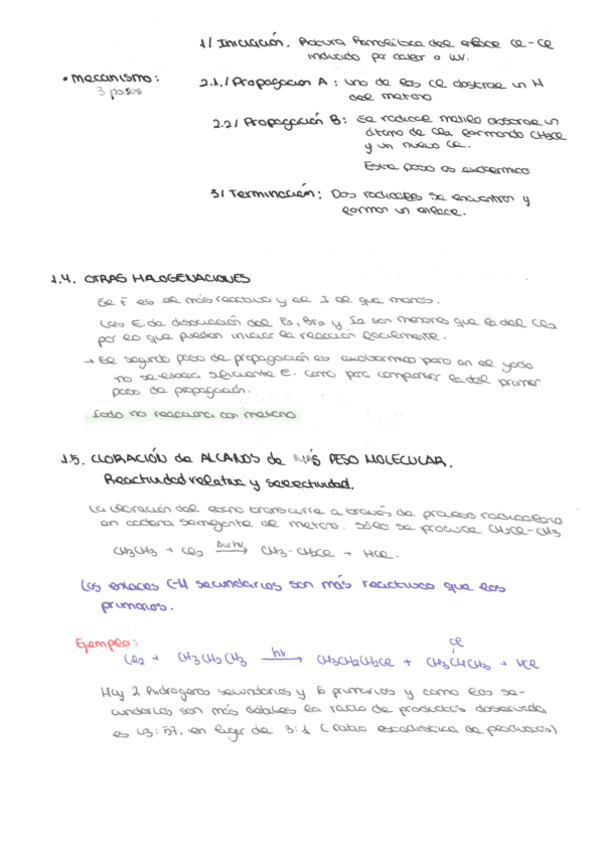 1/ Iniciación. Rotura homolítica del enlace Cl - Cl
inducido por calor o UV.
• Mecanismo:
3 pasos
2.1./ Propagación A: uno de los Cl abstrae un H
del metano
2.2/ Propagación B: El radical metilo abstrae un
átomo de Cl2 formando CH3Cl
y un nuevo Cl.
Este paso es exotérmico
3/ Terminación: Dos radicales se encuentran y
forman un enlace.
1.4. OTRAS HALOGENACIONES
El F es el más reactivo y el I el que menos.
Las E. de disociación del F2, Br2 y I2 son menores que la del Cl2
por lo que pueden iniciar la reacción fácilmente.
→ El segundo paso de propagación es exotérmico pero en el yodo
no se libera suficiente E. como para compensar la del primer
paso de propagación.
Iodo no reacciona con metano
1.5. CLORACIÓN de ALCANOS de MÁS PESO MOLECULAR.
Reactividad relativa y selectividad.
La cloración del etano transcurre a través de proceso radicalario
en cadena semejante al metano. Sólo se produce CH2Cl-CH3
CH3CH3 + Cl2 ⟶ CH3-CH2Cl + HCl.
Los enlaces C-H secundarios son más reactivos que los
primarios.
Ejemplo:
Cl
Cl2 + CH3CH2CH3 hν⟶ CH3CH2CH2Cl + CH3CHCH3 + HCl
Hay 2 hidrógenos secundarios y 6 primarios y como los se-
cundarios son más débiles la ratio de productos observada
es 43:57, en lugar de 3:1 (ratio estadística de productos)